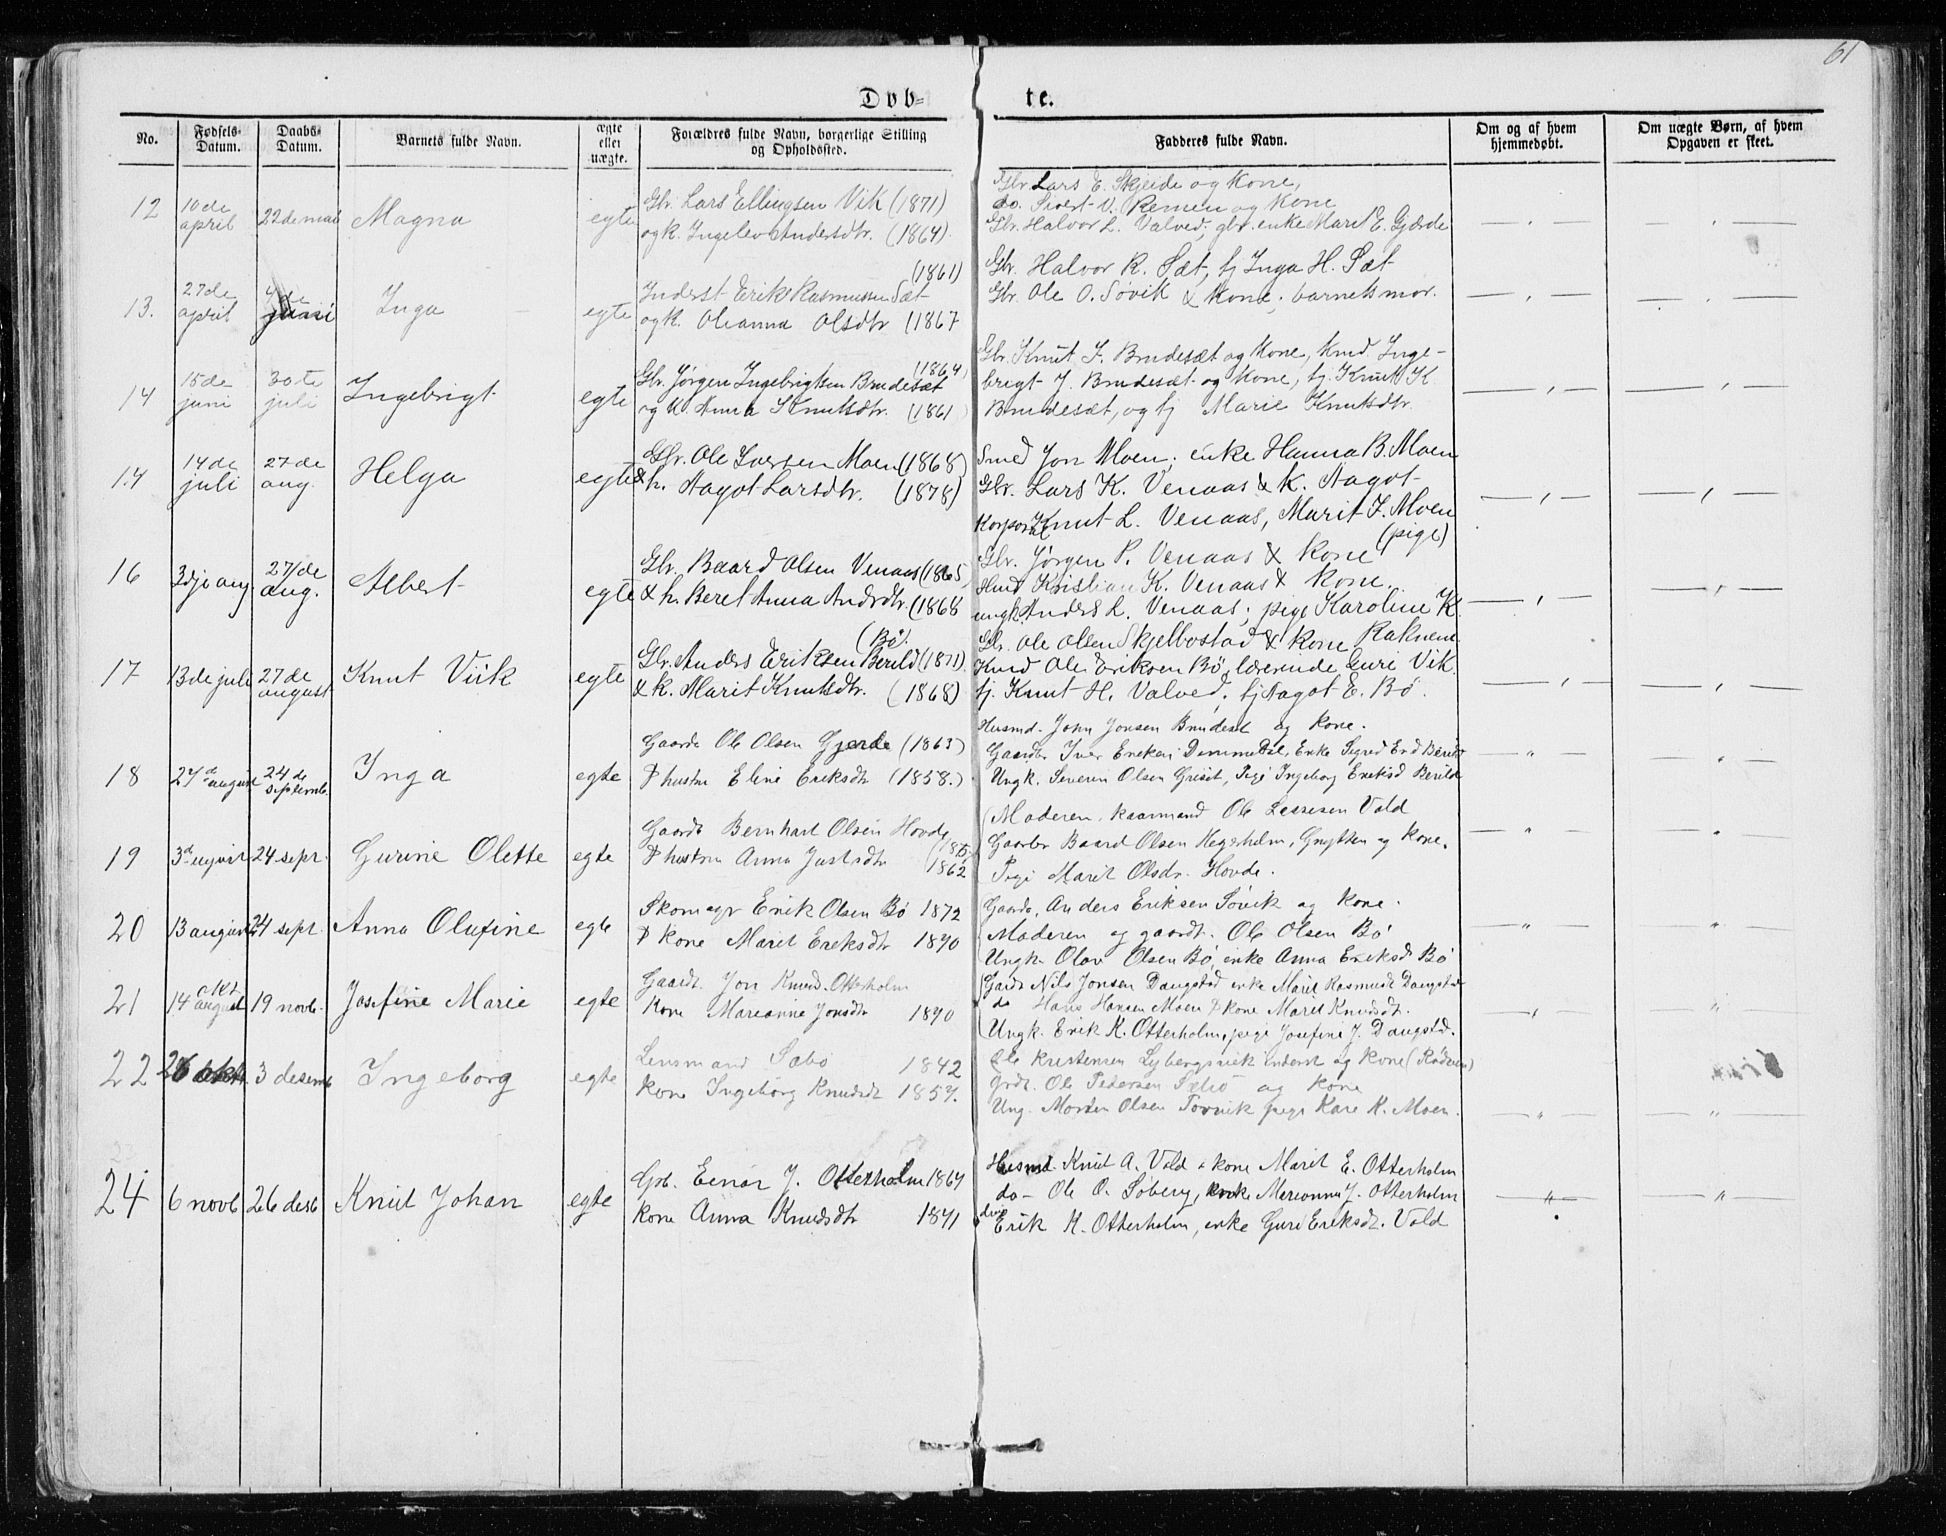 61
Døb- te.
No. Fødsels-Datum. Daabs-Datum. Barnets fulde Navn. ægte eller uægte. Forældres fulde Navn, borgerlige Stilling og Opholdssted. Fadderes fulde Navn. Om og af hvem hjemmedøbt. Om uægte Børn, af hvem Opgaven er skeet.
12 10de april 22de mai Magna egte Gbr. Lars Ellingsen Vik (1871)
og k. Ingelev Andersdtr. (1864).
Gbr. Lars E. Skjeide og Kone,
do. Sivert V. Remen og Kone
Gbr. Halvor L. Valved; gbr. enke Marit E. Gjærde
13. 27de april 4de juni Inga egte Inderst Erik Rasmussen Sæt (1861)
og k. Oleanna Olsdtr (1867
Gbr. Halvor R. Sæt, tj Inga H. Sæt
Gbr. Ole O. Søvik & Kone; barnets mor.
14 15de juni 30te juli Ingebrigt egte Gbr. Jørgen Ingebrigtsen Brudesæt (1864)
og K. Anna Knutsdtr. (1861)
Gbr. Knut I. Brudesæt og Kone, Kmd. Inge-
brigt J. Brudesæt og Kone, tj. Knut K
Brudesæt, og tj Marie Knutsdtr.
14 14de juli 27de aug. Helga egte Gbr. Ole Iversen Moen (1868)
& h. Aagot Larsdtr. (1878)
Smed Jon Moen; enke Hanna B. Moen
Gbr. Lars K. Venaas & K. Aagot
Korporal Knut L. Venaas, Marit I. Moen
(pige)
16 3dje aug 27de aug. Albert egte Gbr. Baard Olsen Venaas (1865)
& h. Beret Anna Andrdtr. (1868
Gbr. Jørgen P. Venaas & Kone
Hmd Kristian K. Venaas & Kone.
ungk. Anders L. Venaas; pige Karoline K
Raknem.
17 13de juli 27de august Knut Viik egte Gbr. Anders Eriksen Berild (Bø). (1871)
& k. Marit Knutsdtr. (1868)
Gbr. Ole Olsen Skjelbostad & Kone
Kmd Ole Eriksen Bø, lærerinde Guri Vik
tj. Knut H. Valved. tj Aagot E. Bø.
18 27de august 24de septemb. Inga egte Gaardb Ole Olsen Gjerde (1863)
& hustru Eline Eriksdtr (1858.)
Husmd. John Jonsen Brudeset og Kone.
Ungk. Severin Olsen Griset, Pige Ingeborg Eriksd Berild
19 3d august 24 sept. Gurine Olette egte Gaardb Bernhart Olsen Hovde
& hustru Anna Jaktsdtr 1862
Moderen. kaarmand Ole Lassesen Vold
Gaardbr Baard Olsen Hegerholm, Gnytten og Kone.
Pige Marit Olsdr. Hovde.
20 13 august 24 sept Anna Olufine egte Skomager Erik Olsen Bø 1872
& Kone Marit Eriksdtr 1870
Gaardb. Anders Eriksen Søvik og kone.
Moderen og gaardb. Ole Olsen Bø
Ungk. Olav Olsen Bø, enke Anna Eriksdt Bø
21 14 okt august 19 novb. Josefine Marie egte Gaardb. Jon Knuds. Otterholm
Kone Marianne Jonsdtr 1870
Gardb Nils Jonsen Daugstad enke Marit Rasmusdt Daugstad
do Hans Hansen Moen & kone Marit Knudsdt.
Ungk. Erik K. Otterholm, pige Josefine J. Daugstad.
22 26 okt 3 desemb Ingeborg egte Lensmand Sæbø 1842
kone Ingeborg Knudsdt 1857.
Ole Kristensen Lybergsvik inderst og kone (Rødven)
Grdb. Ole Pedersen Sæbø og kone
Ung. Morten Olsen Torvik pige Kari K. Moen.
24 6 novb 26 desb Knut Johan egte Gbr. Einar J. Otterholm 1864
kone Anna Knudsdtr 1871
Husmd Knut A. Vold & kone Marit E. Otterholm
do - Ole O. Soberg, enke Marianna J. Otterholm
Erik K. Otterholm, enke Guri Eriksdt. Vold